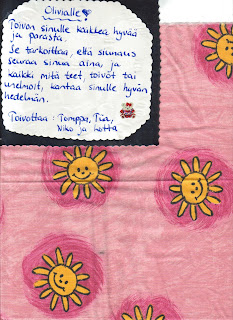 Olivialle
Toivon sinulle kaikkea hyvää
ja parasta.
Se tarkoittaa, että siunaus
seuraa sinua aina, ja
kaikki mitä teet, toivot tai
unelmoit, kantaa sinulle hyvän
hedelmän.
Toivottaa: Tomppa, Tiia,
Niko ja Lotta